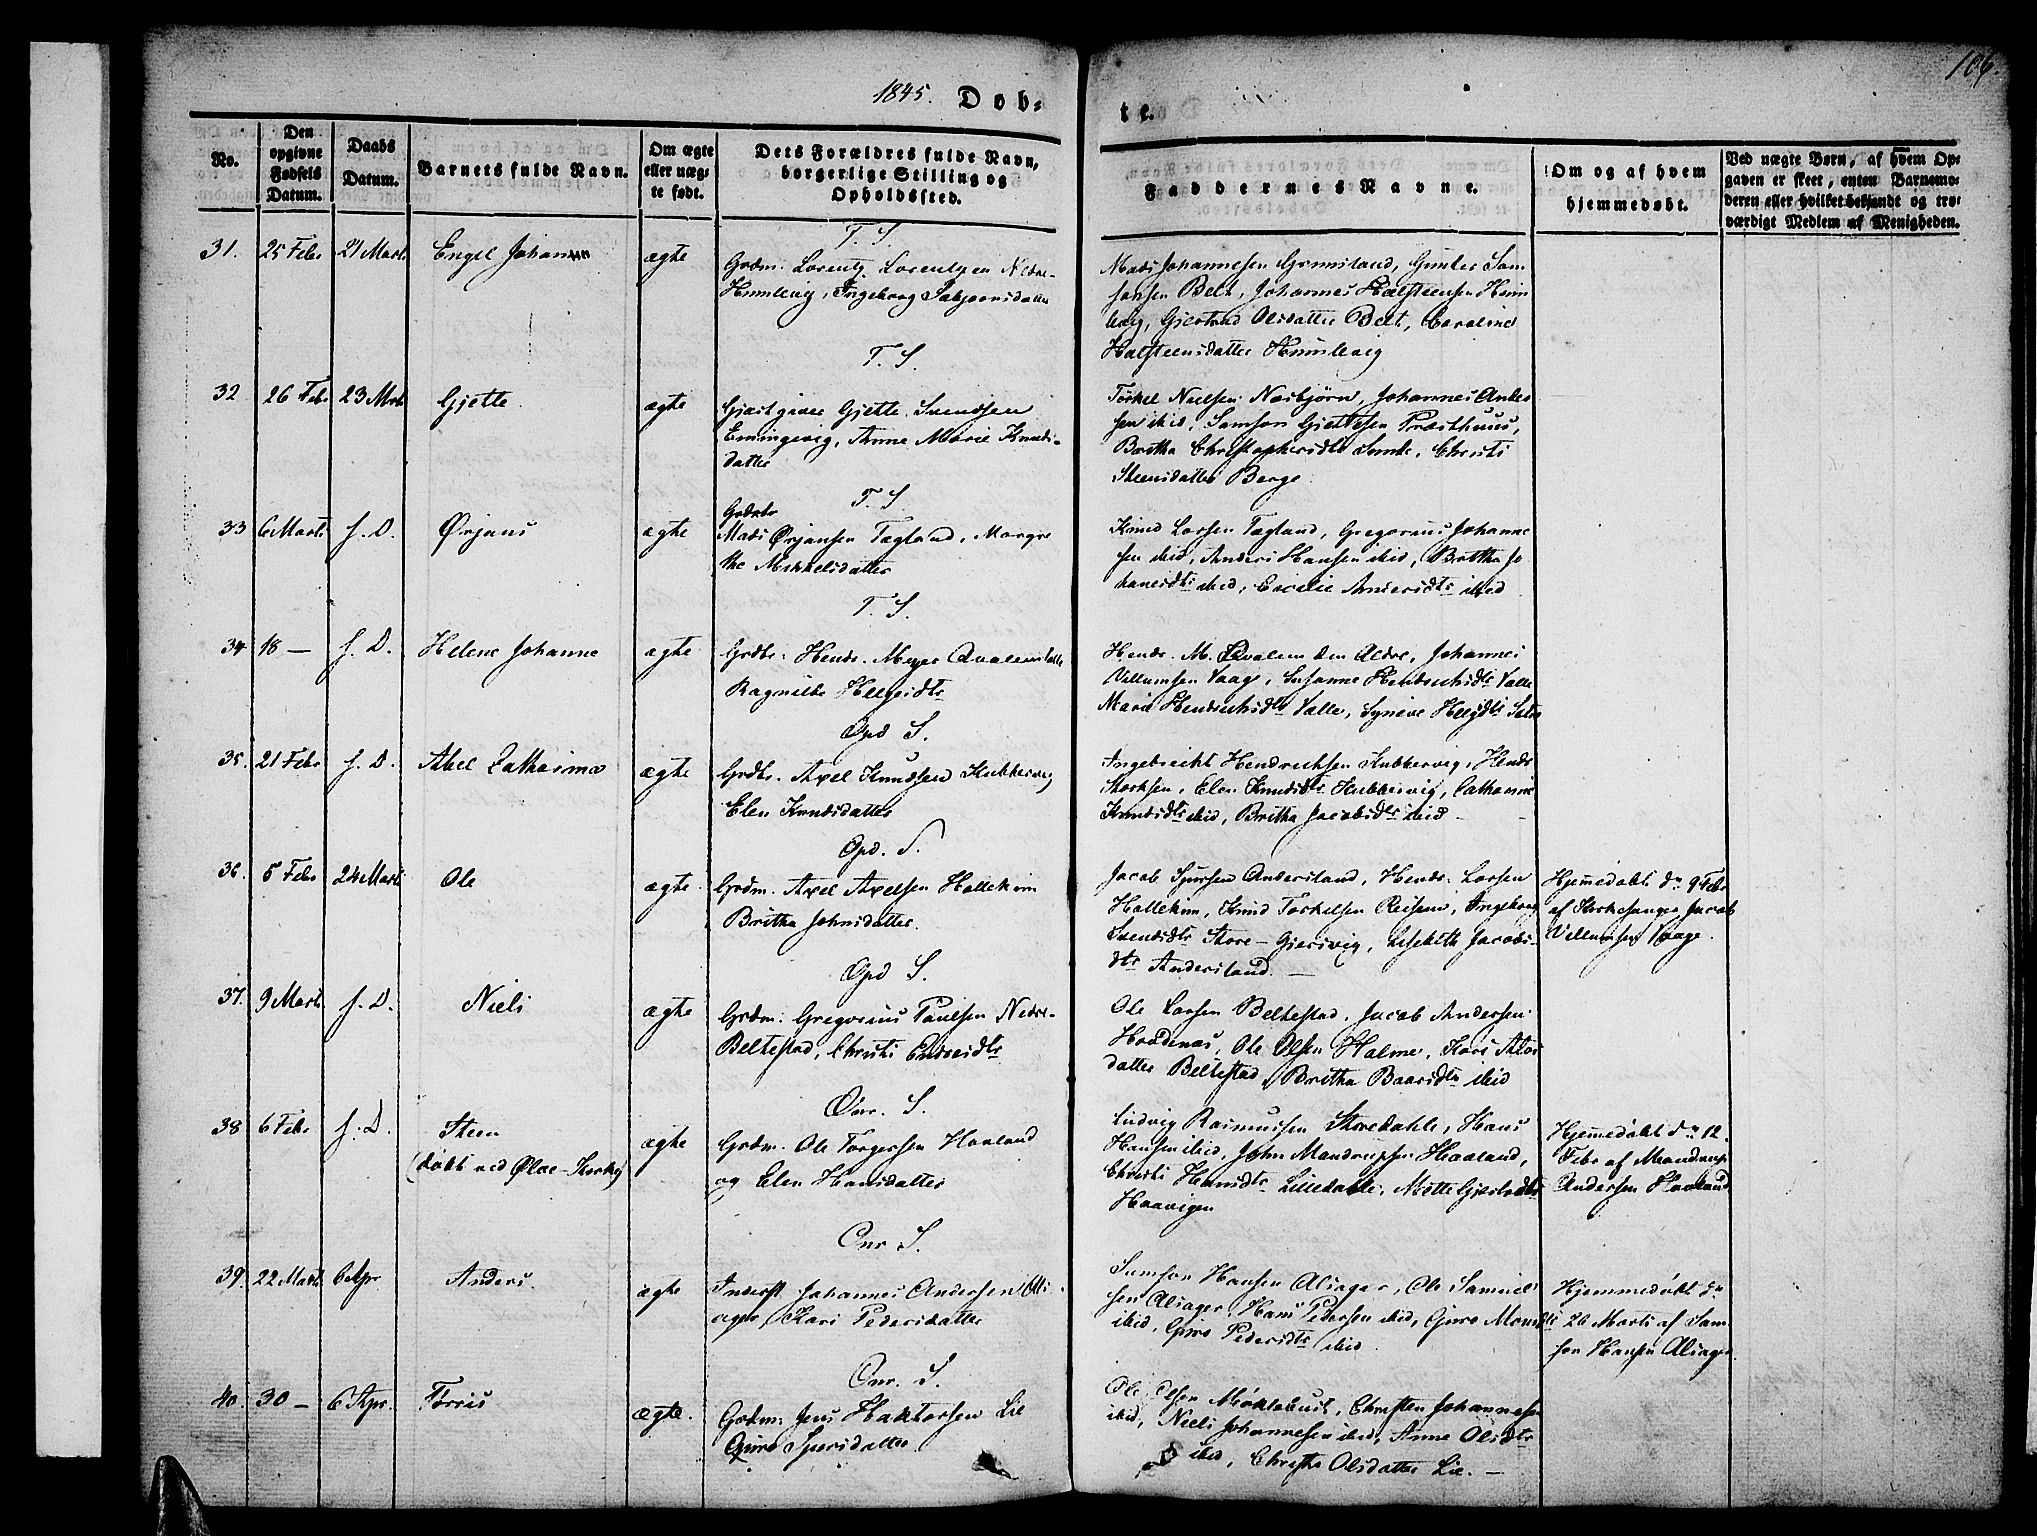 106.
1845. Døb-
te.
No.
Den opgivne Fødsels Datum.
Daabs Datum.
Barnets fulde Navn.
Om ægte eller uæg-te født.
Dets Forældres fulde Navn, borgerlige Stilling og Opholdssted.
Faddernes Navne.
Om og af hvem hjemmedøbt.
Ved uægte Børn, af hvem Op-gaven er skeet, enten Barnemo-deren eller hvilket bekjendt og tro-værdigt Medlem af Menigheden.
T. S.
31. 25 Febr 21 Marts Engel Johanna ægte
Grdm. Lorentz Lorentzen Nedre-
Himlevig, Ingeborg
Mads Johannesen Grimsland, Gunder Sam-
sonsen Belt, Johannes Halsteensen Him
levig, Giertrud Olsdatter Belt, Caroline
Halsteensdatter Himlevig
T. S.
32 26 Febr 23 Marts Gjette ægte
Gjæstgiver Gjette Svendsen
Emingevig, Anne Marie Knuds-
datter
Torkel Nielsen Nasbjørn, Johannes Ander
sen ibid, Samson Giettesen Præsthuus,
Britha Christophersdtr Sunde, Christi
Steensdatter Berge
T. S.
33 6 Marts s. D. Ørjans ægte
Grdbr
Mads Ørjansen Tagland, Margre
the Mikkelsdatter
Knud Larsen Tagland, Gregorius Johanne
sen ibid, Anders Hansen ibid, Britha Jo
hanesdtr ibid, Cecilie Andersdtr ibid
T. S.
34 18 — s. D. Helene Johanne ægte
Grdbr. Hendr. Meyer Qvalem
Ragnilde Helgesdtr
Hendr. M. Qvalem den Ældre, Johannes
Villumsen Vaage, Susanne Hendrichsdtr Valle
Marie Hendrichsdtr Valle, Synève Helgdtr
Opd S.
35. 21 Febr s. D. Axel Catharina ægte
Grdbr. Axel Knudsen Kubbervig
Elen Knudsdatter
Angebricht Hendrichsen Kubbervig, Hendr
Elen Knudsdtr Kubbervig, Cathrine
Knudsdtr ibid, Britha Jacobsdtr ibid —
Opd. S.
36. 5 Febr 24 Marts Ole ægte
Grdm. Axel Axelsen Hallekim
Britha Johnsdatter.
Jacob Sjursen Andersland, Hendr. Larsen
Hallekim, Knud Torkelsen Reisem, Ingeborg
Svendsdtr Store-Giersvig, Lisebeth Jacobs-
dtr Andersland. —
Hjemmedøbt dn 9 Febr
af Kirkesanger Jacob
Villumsen Vaage.
Opd S.
37. 9 Marts s. D. Niels ægte
Grdm: Gregorius Paulsen Nedre-
Beltestad, Christi
Ole Larsen Beltestad, Jacob Andersen
Haadenas, Ole Olsen Halme, Kari
datter Beltestad, Britha Baarsdtr ibid
Ønr. S.
38 6 Febr s. D. Steen ægte
(døbt ved Ølve-Kirke)
Grdm. Ole Torgersen Haaland
og Elen Hansdatter
Ludvig Rasmussen Storedahle, Hans
Hansen ibid, John Mandrupsen Haaland,
Christi Hansdtr Lilledahle, Mette
Haavigen
Hjemmedøbt dn 12
Febr af Mandrup
Andersen Haaland
Onr S.
39. 22 Marts 6 Apr Anders. ægte
Inderst Johannes Andersen Als
ager, Kari Pedersdatter
Samson Hansen Alsager, Ole Samuel
sen Alsager, Hans Pedersen ibid, Guro Mons
ibid, Guro Pedersdtr ibid
Hjemmedøbt dn
26 Marts af Sam-
son Hansen Alsager
Onr. S.
40. 30 — 6 Apr. ægte.
Grdm: Jens Haktorsen Lie
Guro Sjursdatter
Ole Olsen Møklebust, Christen Johannesen
ibid, Niels Johannesen ibid, Anne Olsdtr
ibid, Christi Olsdatter Lie. —